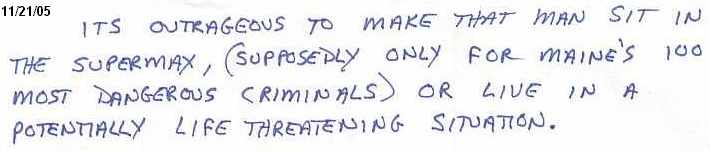 11/21/05
ITS OUTRAGEOUS TO MAKE THAT MAN SIT IN
THE SUPERMAX, (SUPPOSEDLY ONLY FOR MAINE'S 100
MOST DANGEROUS CRIMINALS) OR LIVE IN A
POTENTIALLY LIFE THREATENING SITUATION.